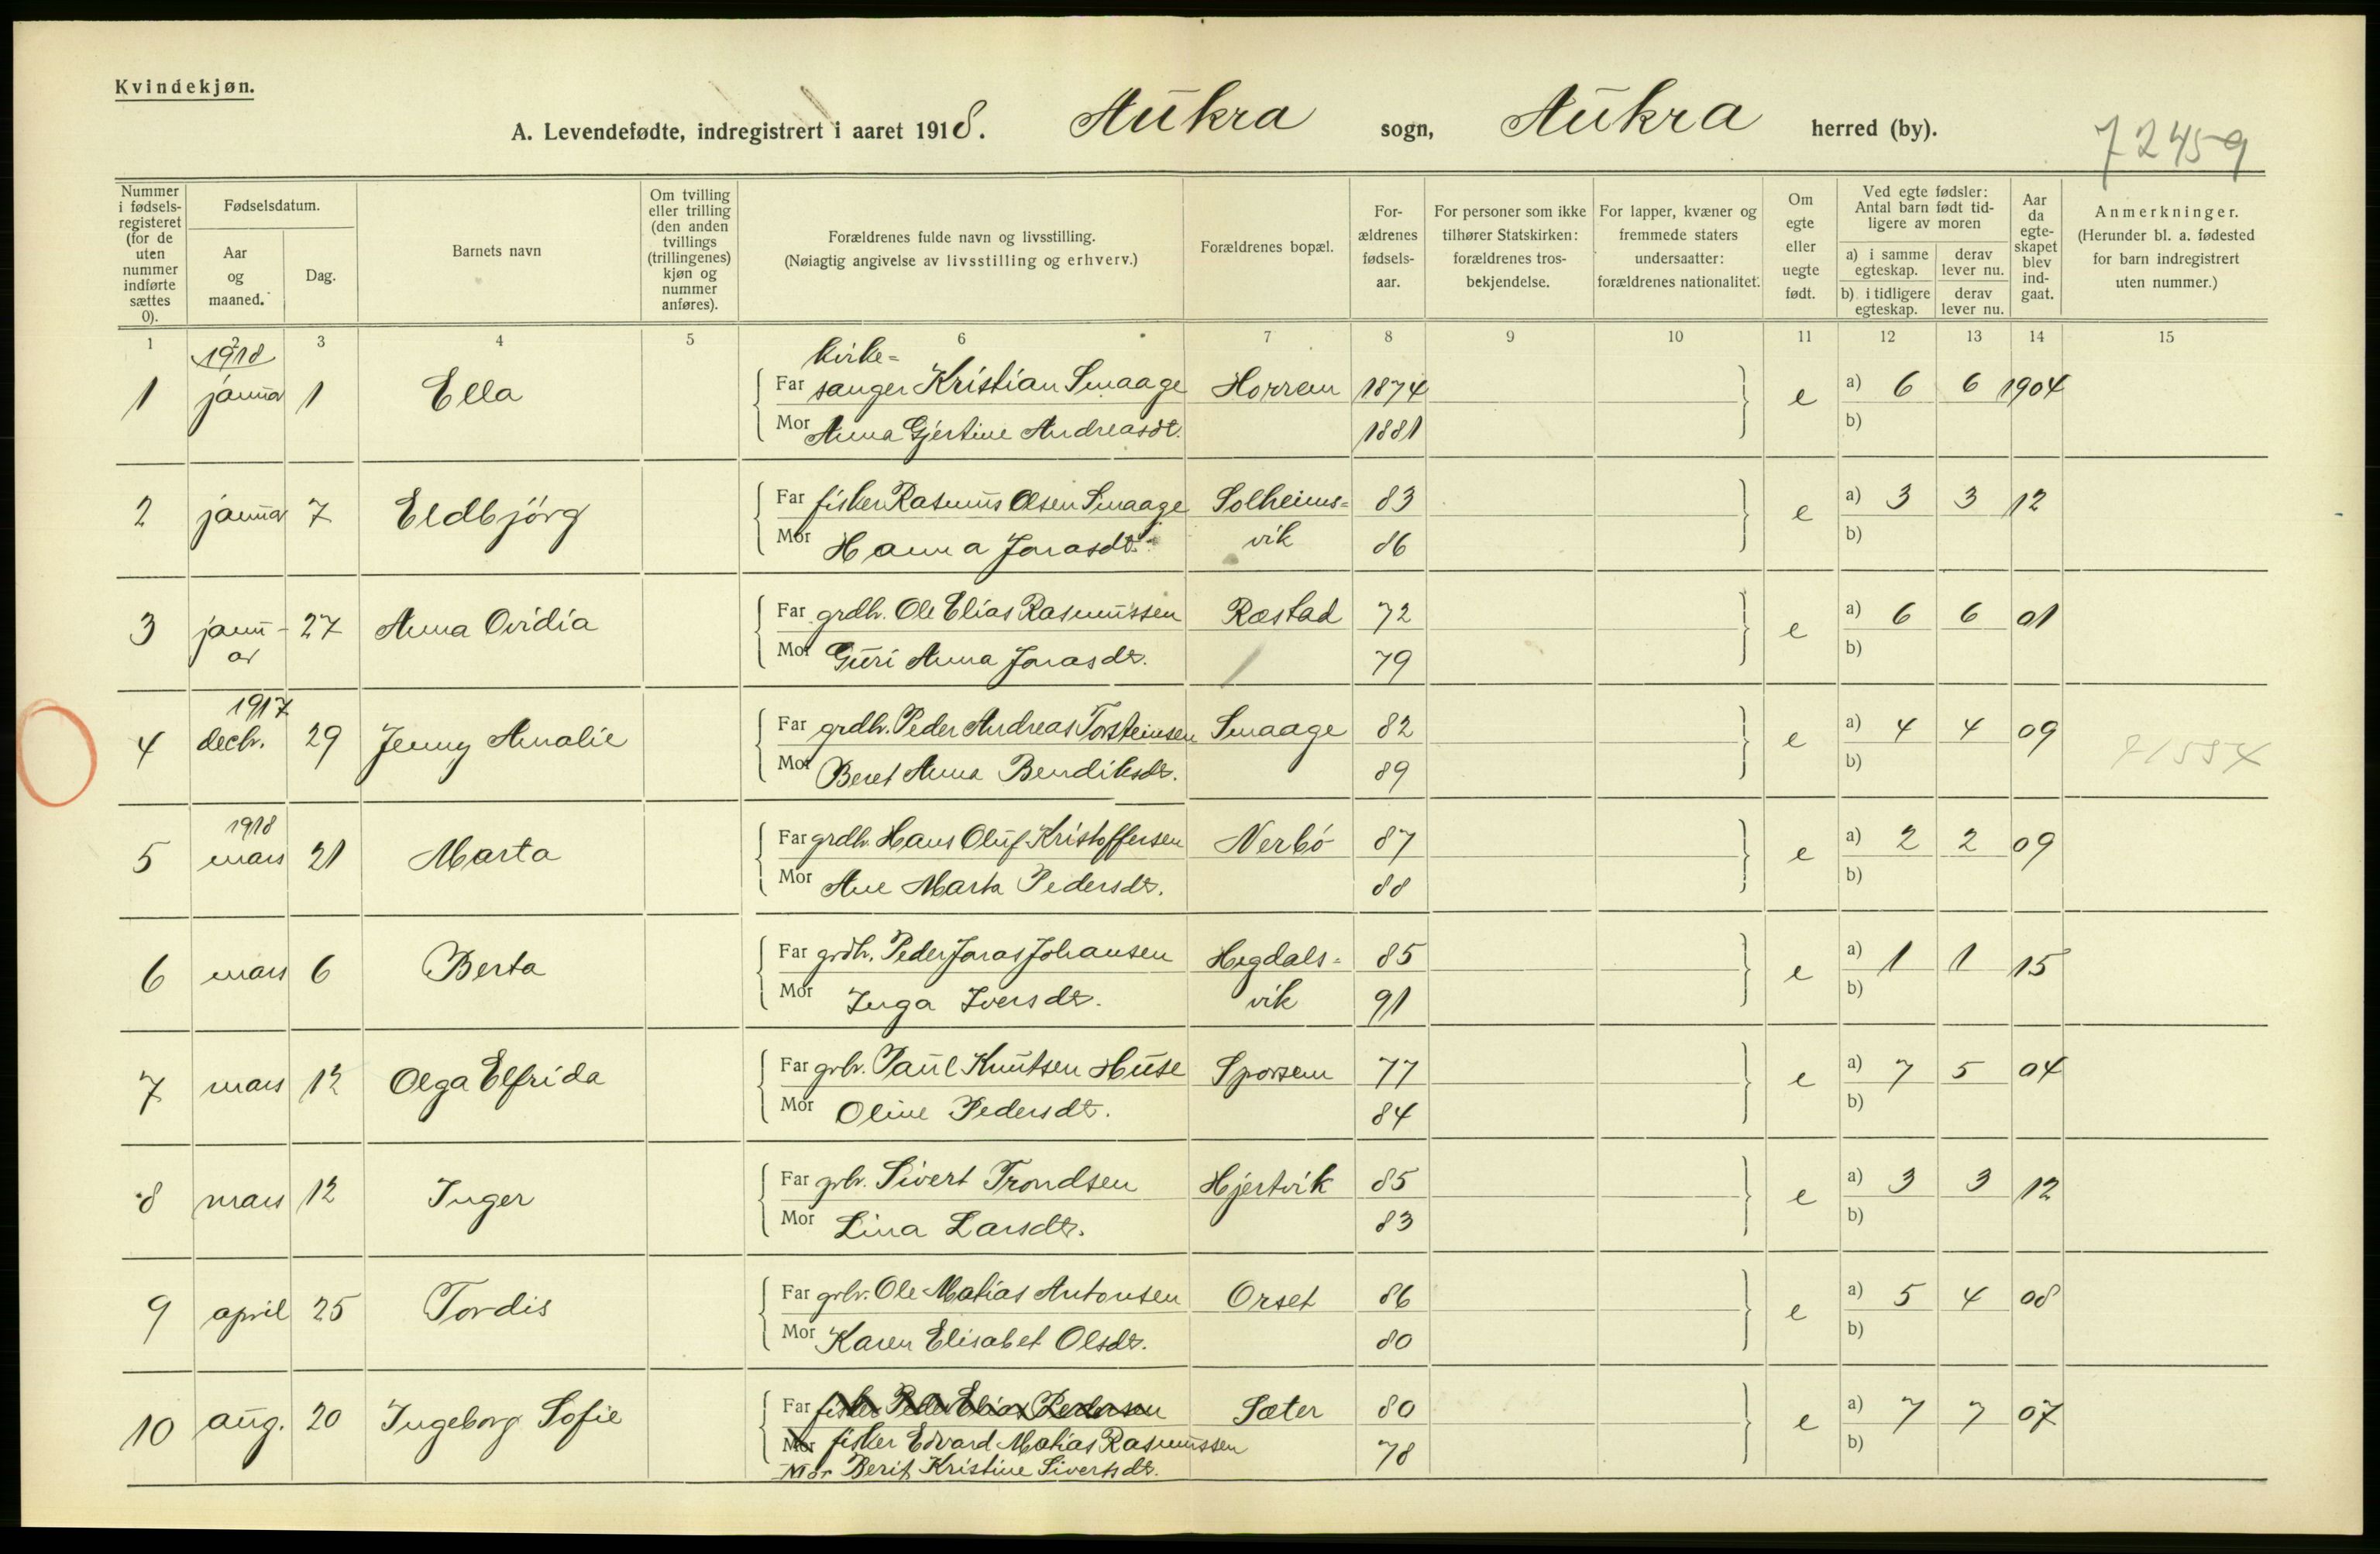 Kvindekjøn.
A. Levendefødte, indregistrert i aaret 1918. Aukra sogn, Aukra herred (by).
72459
Nummer i fødsels-registeret (for de uten nummer indførte sættes 0).
Fødselsdatum.
Aar og maaned.
Dag.
Barnets navn
Om tvilling eller trilling (den anden tvillings (trillingenes) kjøn og nummer anføres).
Forældrenes fulde navn og livsstilling.
(Nøiagtig angivelse av livsstilling og erhverv.)
Forældrenes bopæl.
For-ældrenes fødsels-aar.
For personer som ikke tilhører Statskirken: forældrenes tros-bekjendelse.
For lapper, kvæner og fremmede staters undersaatter: forældrenes nationalitet.
Om egte eller uegte født.
Ved egte fødsler: Antal barn født tid-ligere av moren
a) i samme egteskap.
derav lever nu.
b) i tidligere egteskap.
derav lever nu.
Aar da egte-skapet blev ind-gaat.
Anmerkninger.
(Herunder bl. a. fødested for barn indregistrert uten nummer.)
1 2 3 4 5 6 7 8 9 10 11 12 13 14 15
1918 kirke=
1 januar 1 Ella Far sanger Kristian Smaage Horrem 1874 e a) 6 6 1904
Mor Anna Gjertine Andreasdt. 1881 b)
2 januar 7 Eldbjörg Far fisker Rasmus Olsen Smaage Solheims= 83 e a) 3 3 12
Mor Hanna Jonasdt. vik 86 b)
3 janu- 27 Anna Ovidia Far grdbr. Ole Elias Rasmussen Røstad 72 e a) 6 6 01
ar Mor Guri Anna Jonasdt. 79 b)
1917
4 decbr. 29 Jenny Amalie Far grdbr. Peder Andreas Torsteinsen Smaage 82 e a) 4 4 09
Mor Beret Anna Bendiksdt. 89 b)
1918
5 mars 21 Marta Far grdbr. Hans Oluf Kristoffersen Nerbö 87 e a) 2 2 09
Mor Ane Marta Pedersdt. 88 b)
6 mars 6 Berta Far grdbr. Peder Jonas Johansen Hegdals= 85 e a) 1 1 15
Mor Inga Iversdt. vik 91 b)
7 mars 12 Olga Elfrida Far grbr. Paul Knutsen Huse Sporsem 77 e a) 7 5 04
Mor Oline Pedersdt. 84 b)
8 mars 12 Inger Far grbr. Sivert Trondsen Hjertvik 85 e a) 3 3 12
Mor Lina Larsdt. 83 b)
9 april 25 Tordis Far grbr. Ole Matias Antonsen Orset 86 e a) 5 4 08
Mor Karen Elisabet Olsdt. 80 b)
10 aug. 20 Ingeborg Sofie Far fisker Peder Elias Pedersen Sæter 80 e a) 7 7 07
Mor fisker Edvard Matias Rasmussen 78 b)
Mor Berit Kristine Sivertsdt.